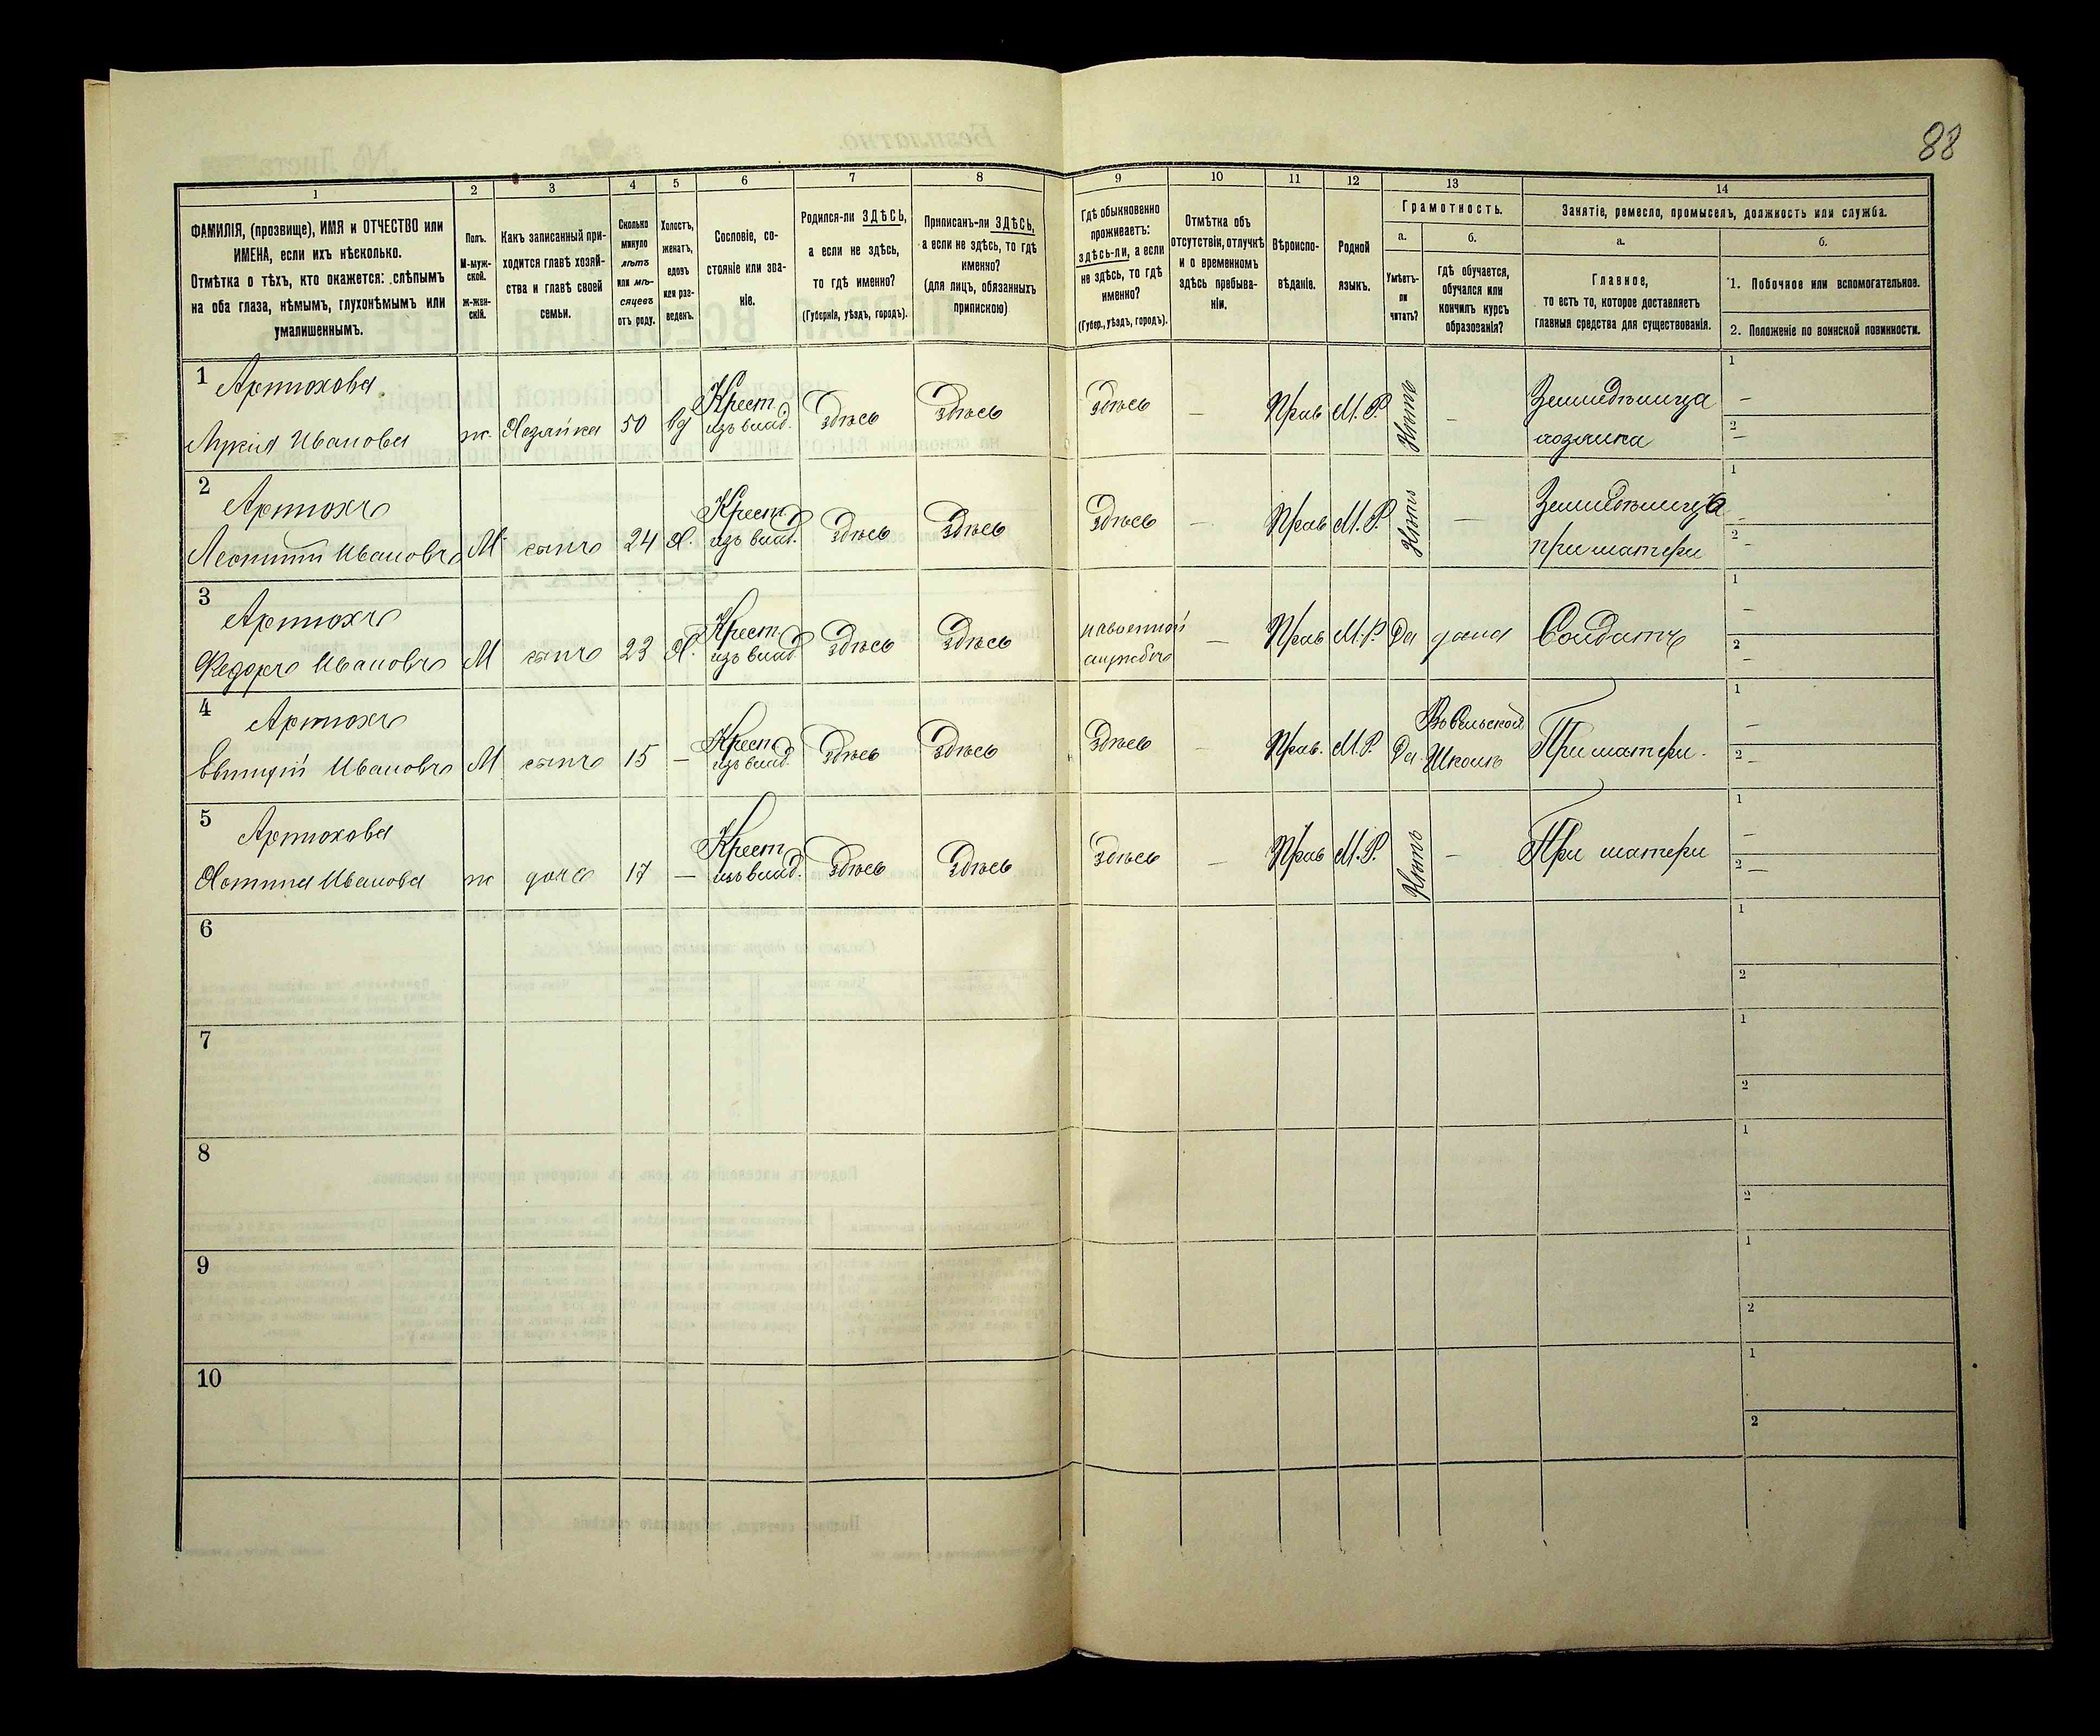 88
1 2 3 4 5 6 7 8 9 10 11 12 13 14
ФАМИЛІЯ, (прозвище), ИМЯ и ОТЧЕСТВО или
ИМЕНА, если ихъ нѣсколько.
Отмѣтка о тѣхъ, кто окажется: слѣпымъ
на оба глаза, нѣмымъ, глухонѣмымъ или
умалишеннымъ.
Полъ.
М-муж-
ской.
ж-жен-
скій.
Какъ записанный при-
ходится главѣ хозяй-
ства и главѣ своей
семьи.
Сколько
минуло
лѣтъ
или мѣ-
сяцевъ
отъ роду.
Холостъ,
женатъ,
вдовъ
или раз-
веденъ.
Сословіе, со-
стояніе или зва-
ніе.
Родился-ли ЗДѢСЬ,
а если не здѣсь,
то гдѣ именно?
(Губернія, уѣздъ, городъ).
Приписанъ-ли ЗДѢСЬ,
а если не здѣсь, то гдѣ
именно?
(для лицъ, обязанныхъ
припискою)
Гдѣ обыкновенно
проживаетъ:
здѣсь-ли, а если
не здѣсь, то гдѣ
именно?
(Губер., уѣздъ, городъ).
Отмѣтка объ
отсутствіи, отлучкѣ
и о временномъ
здѣсь пребыва-
ніи.
Вѣроиспо-
вѣданіе.
Родной
языкъ.
Грамотность.
а.
Умѣетъ-
ли
читать?
б.
гдѣ обучается,
обучался или
кончилъ курсъ
образованія?
Занятіе, ремесло, промыселъ, должность или служба.
а.
Главное,
то есть то, которое доставляетъ
главныя средства для существованія.
б.
1. Побочное или вспомогательное.
2. Положеніе по воинской повинности.
1 Артюхова Крест. Нѣтъ Землѣдѣлица 1 —
Лукія Иванова ж. Хозяйка 50 вд изъ влад. Здѣсь Здѣсь Здѣсь — Прав М.Р. — хозяика 2 —
2 Артюхъ Крест. Нѣтъ Землѣдѣлица 1 —
Леонтій Ивановъ М. сынъ 24 Х. изъ влад. Здѣсь Здѣсь Здѣсь — Прав М.Р. — при матери 2 —
3 Артюхъ Крест. на военной 1 —
Ѳедоръ Ивановъ М сынъ 23 Х. изъ влад. Здѣсь Здѣсь службѣ — Прав М.Р. Да дома Солдатъ 2 —
4 Артюхъ Крест. Въ сельской 1 —
Ивановъ М сынъ 15 — изъ влад. Здѣсь Здѣсь Здѣсь — Прав. М.Р. Да Школѣ При матери. 2 —
5 Артюхова Крест. Нѣтъ 1 —
Хотина Иванова ж дочь 17 — изъ влад. Здѣсь Здѣсь Здѣсь — Прав М.Р. — При матери 2 —
6 1
2
7 1
2
8 1
2
9 1
2
10 1
2